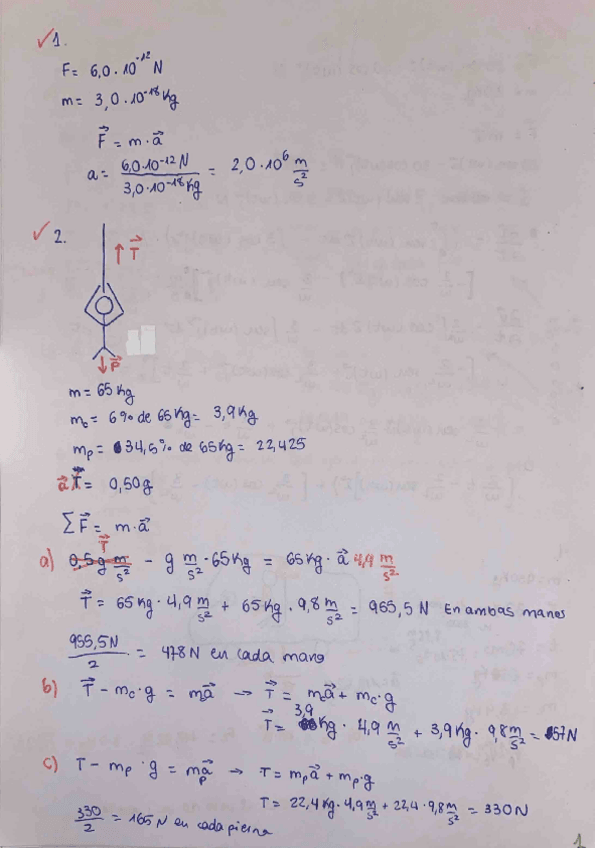 ✓1.
F = 6,0 · 10⁻¹² N
m = 3,0 · 10⁻¹⁸ Kg
F⃗ = m · a⃗
a = 6,0·10⁻¹² N / 3,0·10⁻¹⁸ Kg = 2,0 · 10⁶ m/s²
✓2.
↑ T⃗
↓ P⃗
m = 65 Kg
mc = 6% de 65 Kg = 3,9 Kg
mp = 34,5% de 65 Kg = 22,425
a⃗ = 0,50 g
∑ F⃗ = m · a⃗
a) T⃗ - g m/s² · 65 Kg = 65 Kg · a⃗ 4,9 m/s²
T⃗ = 65 Kg · 4,9 m/s² + 65 Kg · 9,8 m/s² = 955,5 N En ambas manos
955,5 N / 2 = 478 N en cada mano
b) T⃗ - mc · g = mc a⃗ → T⃗ = mc a⃗ + mc · g
T⃗ = 3,9 Kg · 4,9 m/s² + 3,9 Kg · 9,8 m/s² = 57 N
c) T - mp · g = mp a⃗ → T = mp a⃗ + mp · g
T = 22,4 Kg · 4,9 m/s² + 22,4 · 9,8 m/s² = 330 N
330 / 2 = 165 N en cada pierna
1